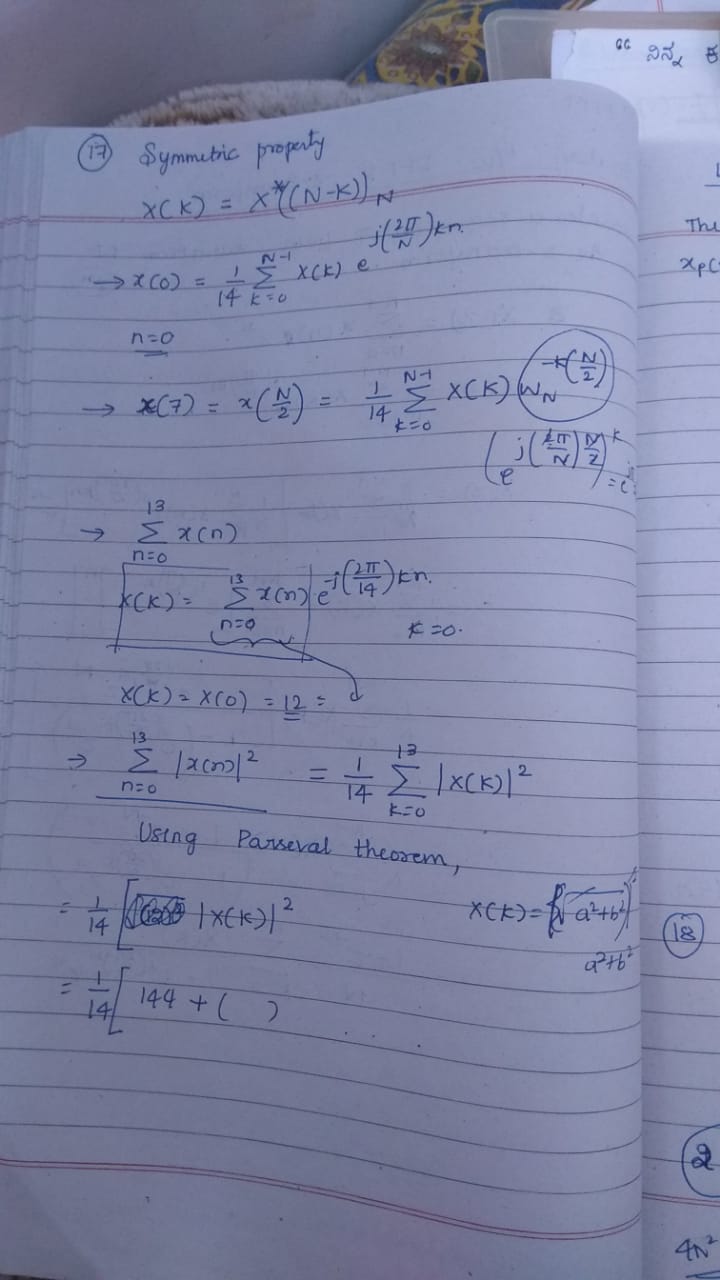 (17) Symmetric property
X(K) = X*((N-K))_N
→ x(0) = 1/14 Σ_{K=0}^{N-1} X(K) e^{j(2π/N)kn}
n=0
→ x(7) = x(N/2) = 1/14 Σ_{K=0}^{N-1} X(K) W_N^{-k(N/2)}
(e^{j(2π/N)N/2})^k
→ Σ_{n=0}^{13} x(n)
X(K) = Σ_{n=0}^{13} x(n) e^{-j(2π/14)kn}
K=0.
X(K) = X(0) = 12 =
→ Σ_{n=0}^{13} |x(n)|² = 1/14 Σ_{K=0}^{13} |X(K)|²
Using Parseval theorem,
= 1/14 [ |X(K)|²
X(K) = a²+b²
a²+b²
= 1/14 [ 144 + ( )
“ ನಿನ್ನ
The
xp(
(18)
2
4N²